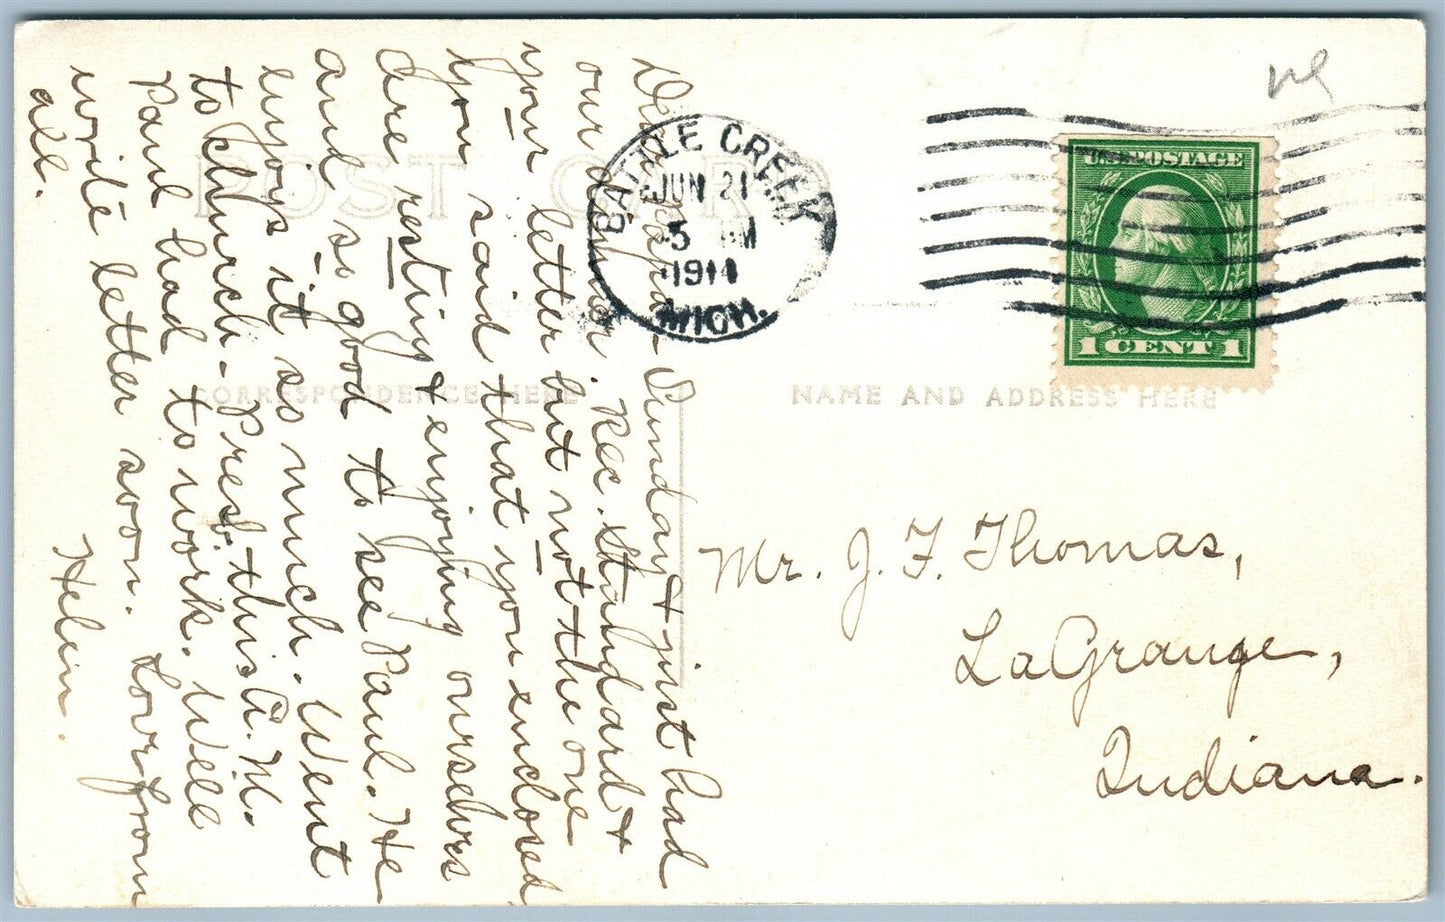 Dear Papa - Sunday & just had
our dinner. Rec. Standard &
your letter but not the one
you said that you enclosed
Are resting & enjoying ourselves
and so good to see Paul. He
enjoys it so much. Went
to church - Pres. this A.M.
Paul had to work. Will
write letter soon. Love from
all.
Helen.
POST CARD
CORRESPONDENCE HERE
NAME AND ADDRESS HERE
BATTLE CREEK
JUN 21
5 PM
1914
MICH.
U.S. POSTAGE
1 CENT 1
Mr. J. F. Thomas,
LaGrange,
Indiana.